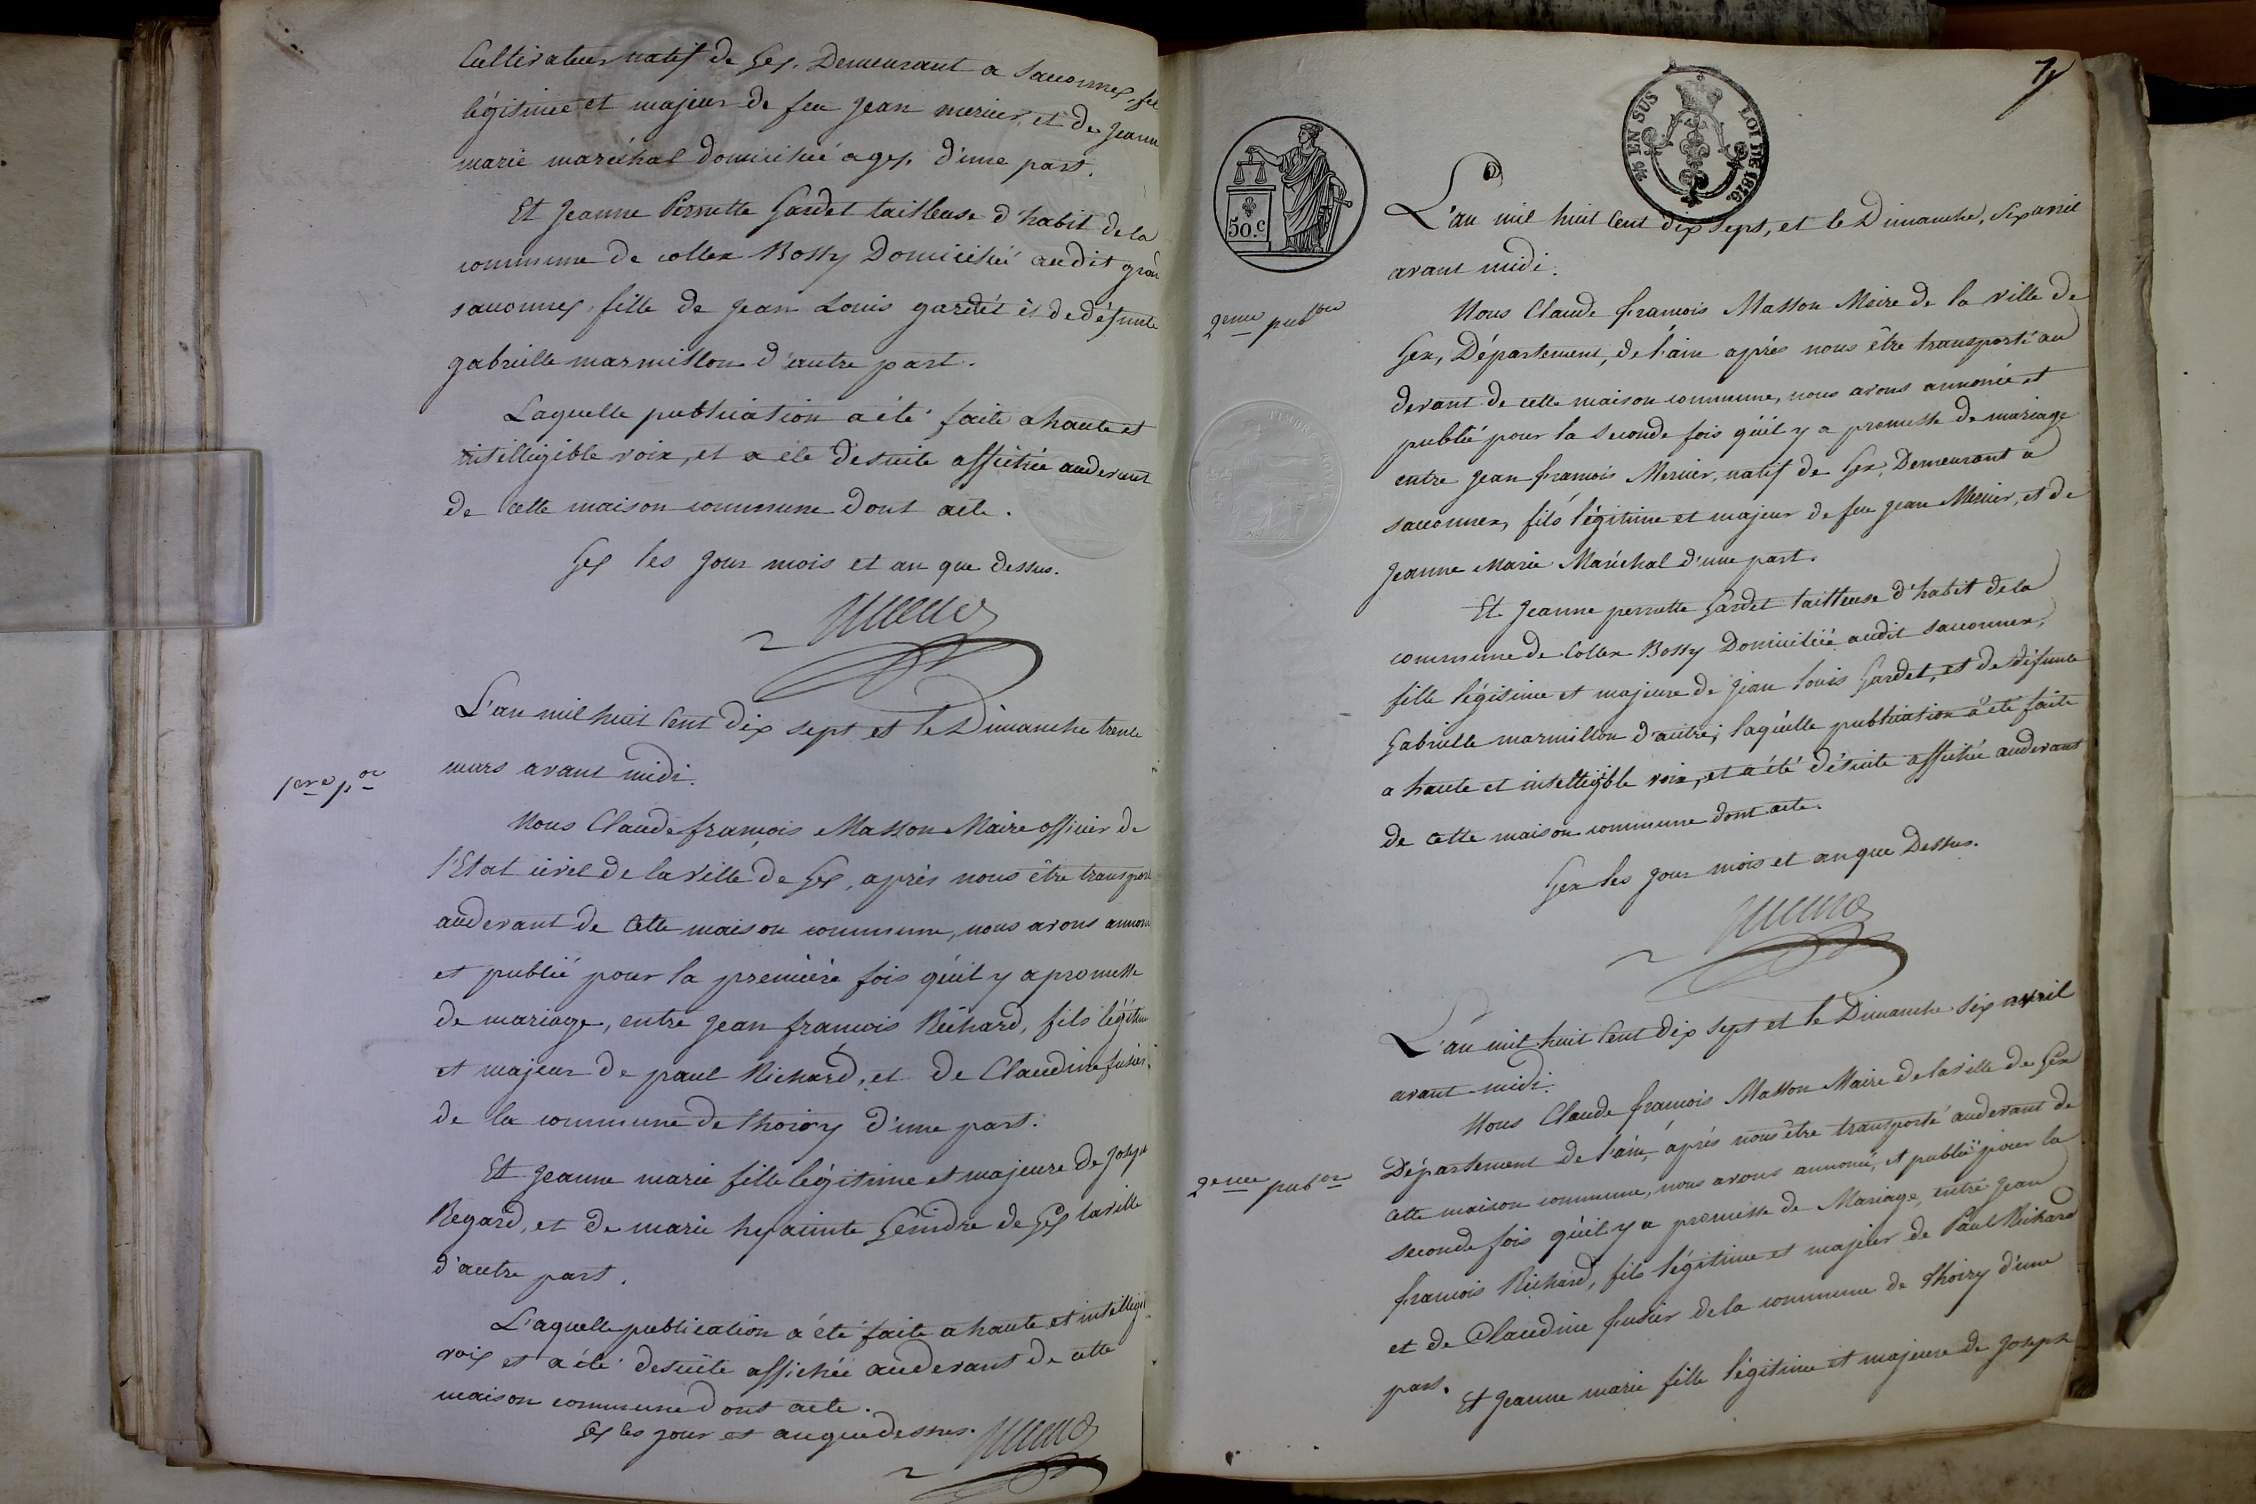 Cultivateur natif de Gex, Demeurant a Sauonnex, fil
légitime et majeur de feu Jean mercier, et de Jeanne
marie maréchal domicilié a gex, d'une part.
Et Jeanne Pernette Gardet tailleuse d'habit de la
commune de collex Bossy Domiciliée audit gran
sauonnex, fille de Jean Louis gardet et de défunte
gabrielle marmillon d'autre part.
Laquelle publication a été faite a haute et
intelligible voix, et a été desuite affichée audevant
de cette maison commune dont acte.
Gex les jour mois et an que dessus.
L'an mil huit Cent dix sept et le Dimanche trente
mars avant midi.
pre pon
Nous Claude françois Masson Maire officier de
l'Etat civil de la ville de Gex, après nous être transpor
audevant de cette maison commune, nous avons annon
et publié pour la première fois qu'il y a promesse
de mariage, entre Jean françois Richard, fils légitim
et majeur de paul Richard, et de Claudine fusier
de la commune de thoiry d'une part.
Et Jeanne marie fille légitime et majeure de Joseph
Regard, et de marie hyacinte Geindre de Gex la ville
d'autre part.
L'aquelle publication a été faite a haute et intelligi
voix et a été desuite affichée audevant de cette
maison commune dont acte.
Gex les jour et an que dessus.
7
¼ EN SUS LOI DE 1816
50.c
TIMBRE ROYAL
L'an mil huit Cent dix sept, et le Dimanche, Six avril
avant midi.
2eme pubon
Nous Claude françois Masson Maire de la ville de
Gex, Département, de l'ain après nous être transporté au
devant de cette maison commune, nous avons annoncé et
publié pour la seconde fois qu'il y a promesse de mariage
entre Jean françois Mercier, natif de Gex, Demeurant a
sauonnex, fils légitime et majeur de feu Jean Mercier, et de
Jeanne Marie Maréchal d'une part.
Et Jeanne pernette Gardet tailleuse d'habit de la
commune de Collex Bossy Domiciliée audit sauonnex,
fille légitime et majeure de Jean Louis Gardet, et de défunte
Gabrielle marmillon d'autre; laquelle publication a été faite
a haute et intelligible voix, et a été desuite affichée audevant
de cette maison commune dont acte.
Gex les jour mois et an que Dessus.
L'an mil huit Cent dix sept et le Dimanche Six avril
avant midi.
Nous Claude françois Masson Maire de la ville de Gex
2eme pubon
Département de l'ain, après nous être transporté audevant de
cette maison commune, nous avons annoncé, et publié pour la
seconde fois qu'il y a promesse de Mariage, entre Jean
francois Richard, fils légitime et majeur de Paul Richard
et de Claudine fusier de la commune de thoiry d'une
part.
Et Jeanne marie fille légitime et majeure de Joseph